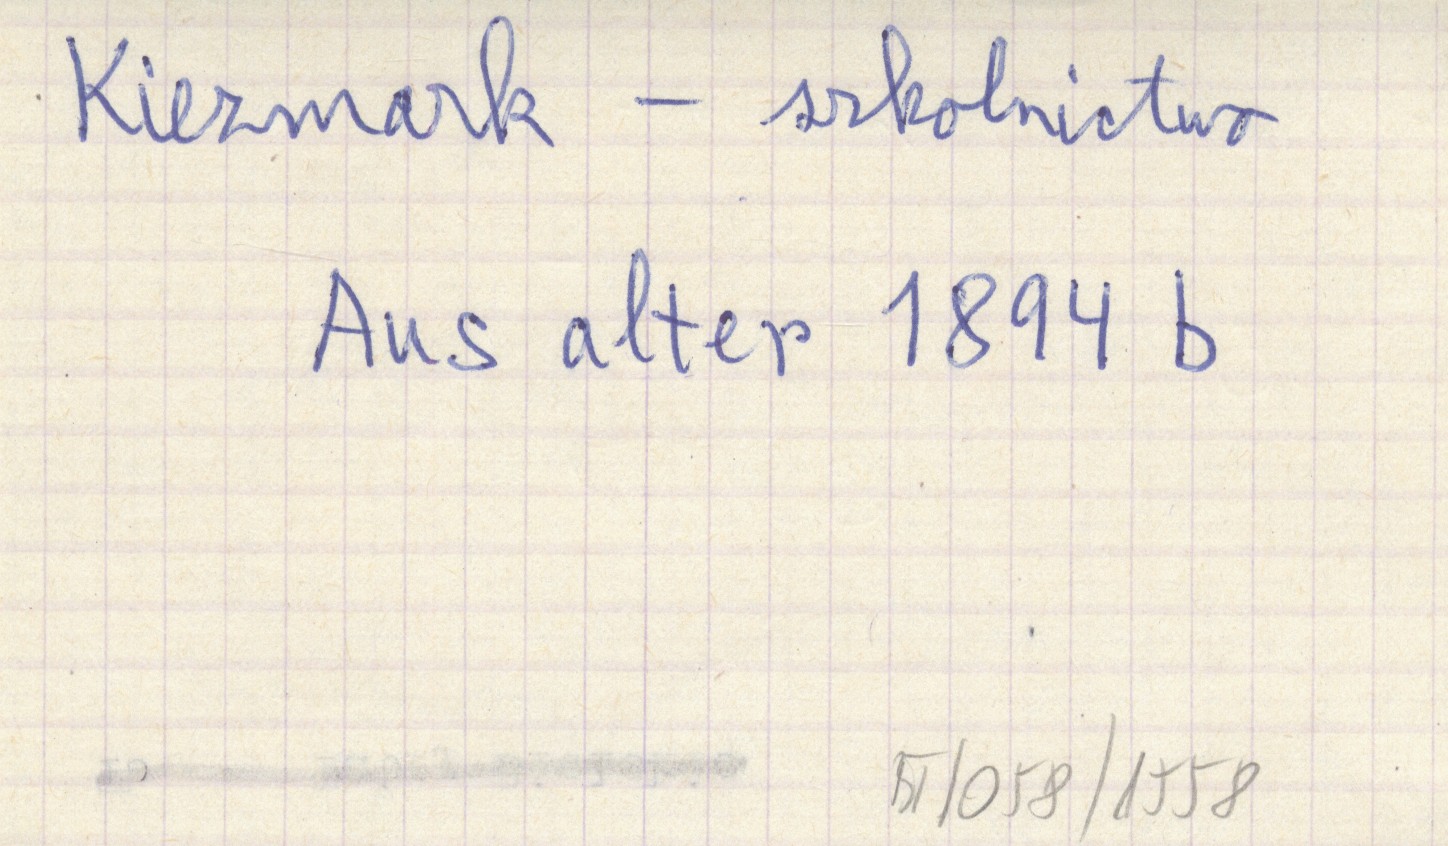 Kiezmark - szkolnictwo
Aus alter 1894 b
/058/1558